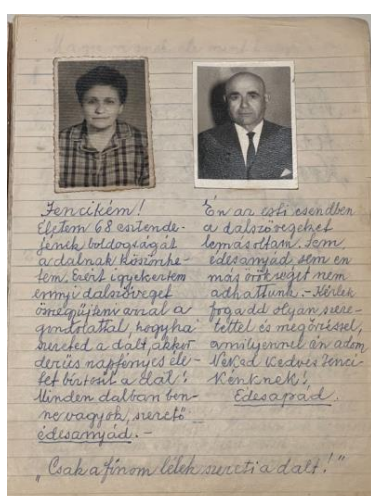 Jencikém!
Életem 68 esztende-
jének boldogságát
a dalnak köszönhe-
tem. Ezért igyekeztem
ennyi dalszöveget
összegyűjteni azzal a
gondolattal, hogyha
szereted a dalt, akkor
derüs napfényes éle-
tet biztosit a dal!
Minden dalban ben-
ne vagyok, szerető
édesanyád. -
Én az esti csendben
a dalszövegeket
lemásoltam. Sem
édesanyád sem én
más örökséget nem
adhattunk. - Kérlek
fogadd olyan szere-
tettel és megőrzéssel,
amilyennel én adom
Néked kedves Jenci-
kénknek!
Édesapád.
"Csak a finom lélek szereti a dalt!"